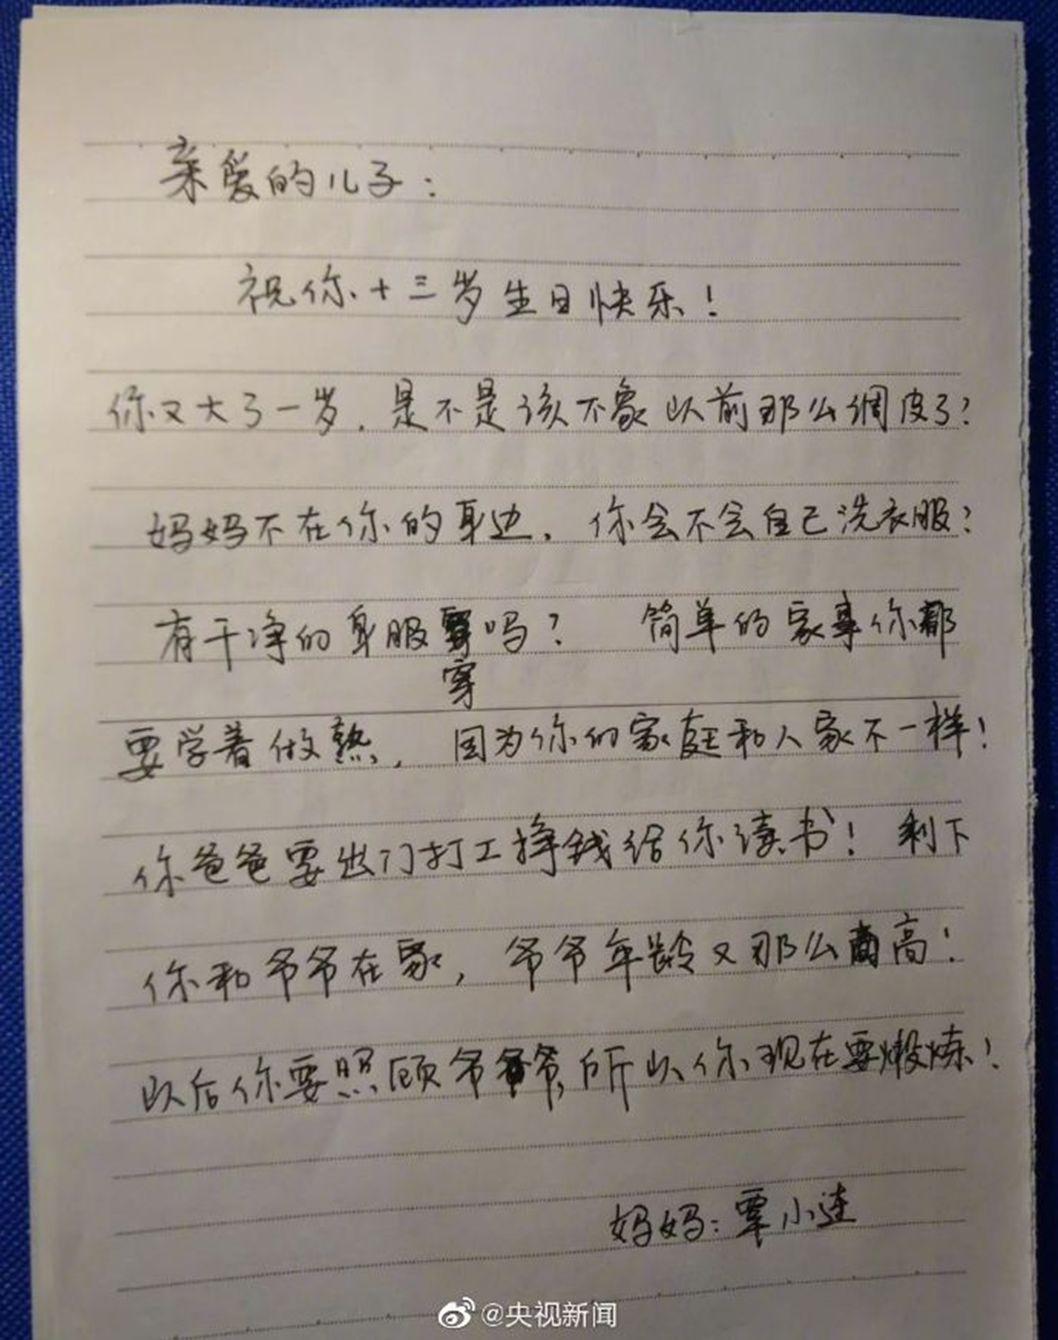 亲爱的儿子：
祝你十三岁生日快乐！
你又大了一岁，是不是该不象以前那么调皮了？
妈妈不在你的身边，你会不会自己洗衣服？
有干净的身服穿吗？ 简单的家事你都
穿
要学着做熟，因为你的家庭和人家不一样！
你爸爸要出门打工挣钱给你读书！剩下
你和爷爷在家，爷爷年龄又那么高！
以后你要照顾爷爷，所以你现在要煅炼！
妈妈：覃小连
@央视新闻